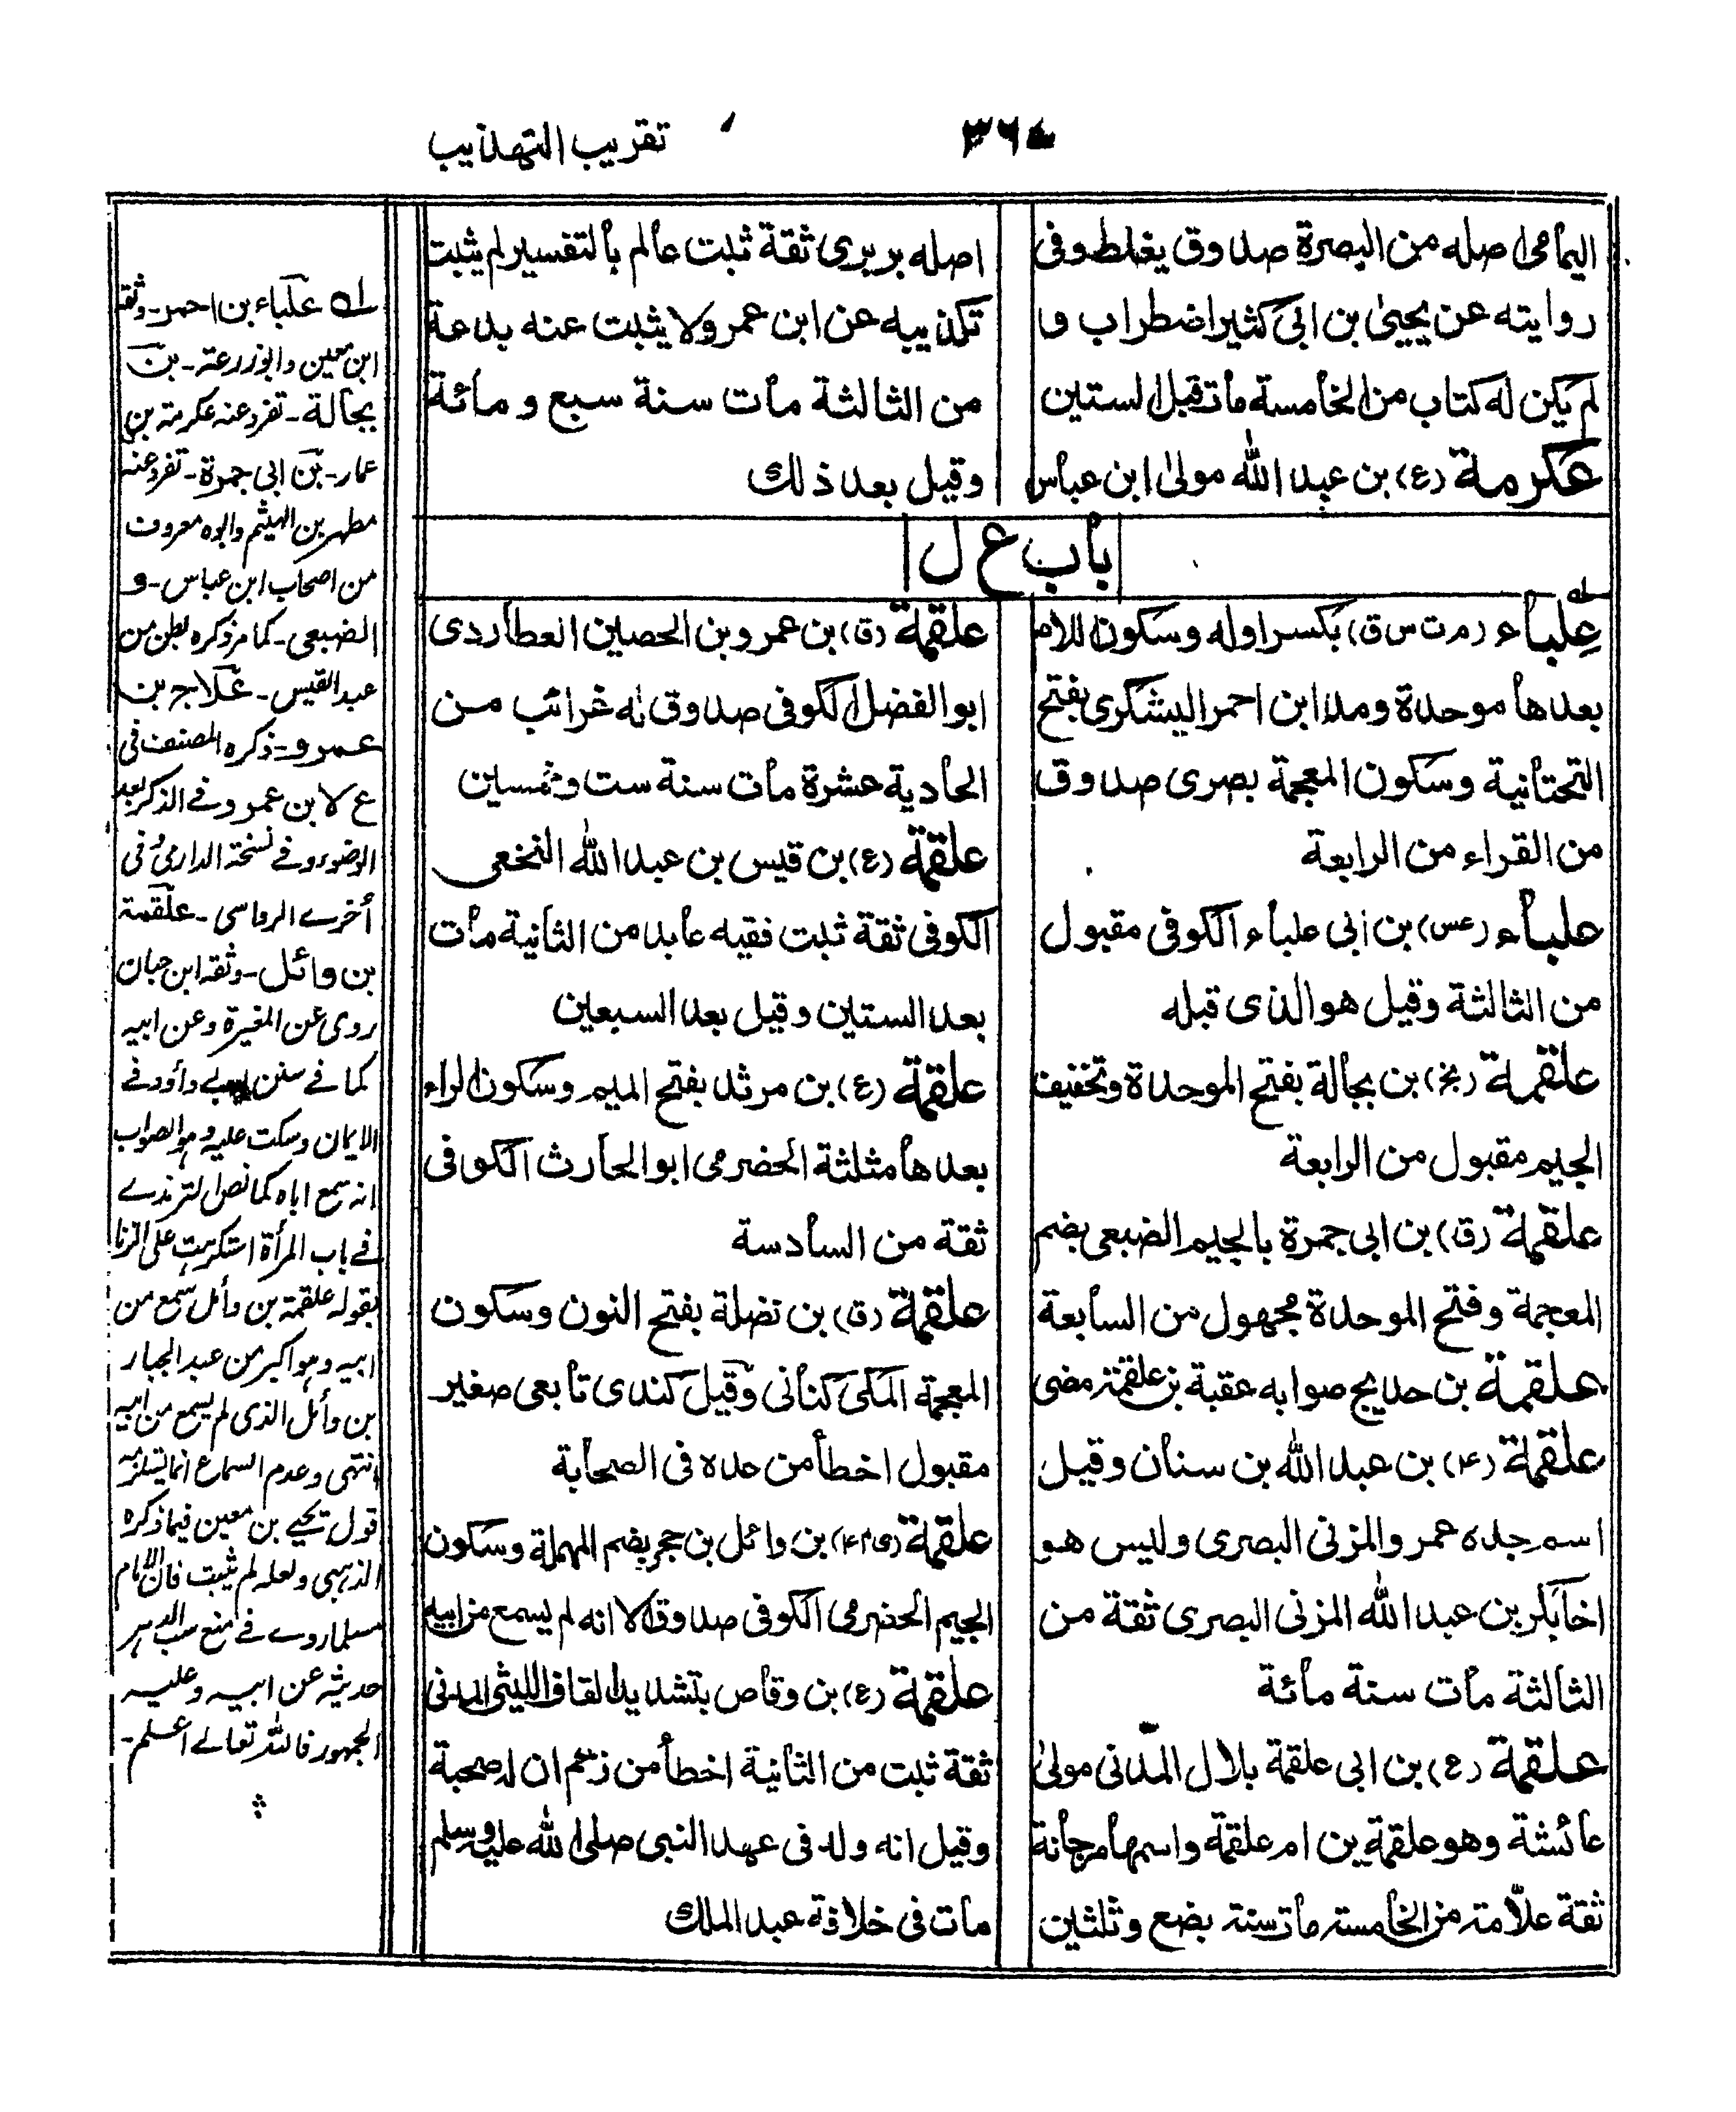 ٣٦٧ تقريب التهذيب
اليمامى اصله من البصرة صدوق يغلط وفى
روايته عن يحيىٰ بن ابى كثير اضطراب و
لم يكن له كتاب من الخامسة مات قبل الستين
عكرمة (ع) بن عبد الله مولىٰ ابن عباس
اصله بربرى ثقة ثبت عالم بالتفسير لم يثبت
تكذيبه عن ابن عمر ولا يثبت عنه بدعة
من الثالثة مات سنة سبع و مائة
وقيل بعد ذلك
باب ع ل
عِلباء (م ت س ق) بكسر اوله وسكون اللام
بعدها موحدة ومد ابن احمر اليشكرى بفتح
التحتانية وسكون المعجمة بصرى صدوق
من القراء من الرابعة
علباء (عس) بن ابى علباء الكوفى مقبول
من الثالثة وقيل هو الذى قبله
علقمة (بخ) بن بجالة بفتح الموحدة وتخفيف
الجيم مقبول من الرابعة
علقمة (ق) بن ابى جمرة بالجيم الضبعى بضم
المعجمة وفتح الموحدة مجهول من السابعة
علقمة بن حديج صوابه عقبة بن علقمة مضى
علقمة (۴) بن عبد الله بن سنان وقيل
اسم جده عمرو المزنى البصرى وليس هو
اخا بكر بن عبد الله المزنى البصرى ثقة من
الثالثة مات سنة مائة
علقمة (ع) بن ابى علقمة بلال المدنى مولىٰ
عائشة وهو علقمة بن ام علقمة واسمها مرجانة
ثقة علّامة من الخامسة مات سنة بضع وثلثين
علقمة (ق) بن عمرو بن الحصين العطاردى
ابو الفضل الكوفى صدوق له غرائب من
الحادية عشرة مات سنة ست وخمسين
علقمة (ع) بن قيس بن عبد الله النخعى
الكوفى ثقة ثبت فقيه عابد من الثانية مات
بعد الستين وقيل بعد السبعين
علقمة (ع) بن مرثد بفتح الميم وسكون الراء
بعدها مثلثة الحضرمى ابو الحارث الكوفى
ثقة من السادسة
علقمة (ق) بن نضلة بفتح النون وسكون
المعجمة المكى كنانى وقيل كندى تابعى صغير
مقبول اخطأ من عده فى الصحابة
علقمة (ى م ۴) بن وائل بن حجر بضم المهملة وسكون
الجيم الحضرمى الكوفى صدوق الا انه لم يسمع من ابيه
علقمة (ع) بن وقاص بتشديد القاف الليثى المدنى
ثقة ثبت من الثانية اخطأ من زعم ان له صحبة
وقيل انه ولد فى عهد النبى صلى الله عليه وسلم
مات فى خلافة عبد الملك
له علباء بن احمر ـ وثقه
ابن معين وابو زرعة ـ بن
بجالة ـ تفرد عنه عكرمة بن
عمار ـ بن ابى جمرة ـ تفرد عنه
مطهر بن الهيثم وابوه معروف
من اصحاب ابن عباس ـ و
الضبعى ـ كما مر ذكره بطن من
عبد القيس ـ علاج بن
عمرو ـ ذكره المصنف فى
ع لا بن عمرو فى الذكر بعد
الوضوء وفى نسخة الدارمى وفى
أخرى الرواسى ـ علقمة
بن وائل ـ وثقه ابن حبان
روى عن المغيرة وعن ابيه
كما فى سنن ابى داود فى
الايمان وسكت عليه وهو الصواب
انه سمع اباه كما نص الترمذى
فى باب المرأة استكرهت على الزنا
بقوله علقمة بن وائل سمع من
ابيه وهو اكبر من عبد الجبار
بن وائل الذى لم يسمع من ابيه
انتهى وعدم السماع انما
قول يحيى بن معين فيما ذكره
الذهبى ولعله لم يثبت فان الامام
مسلما روى فى منع سب الدهر
حديثه عن ابيه وعليه
الجمهور فالله تعالى اعلم ـ